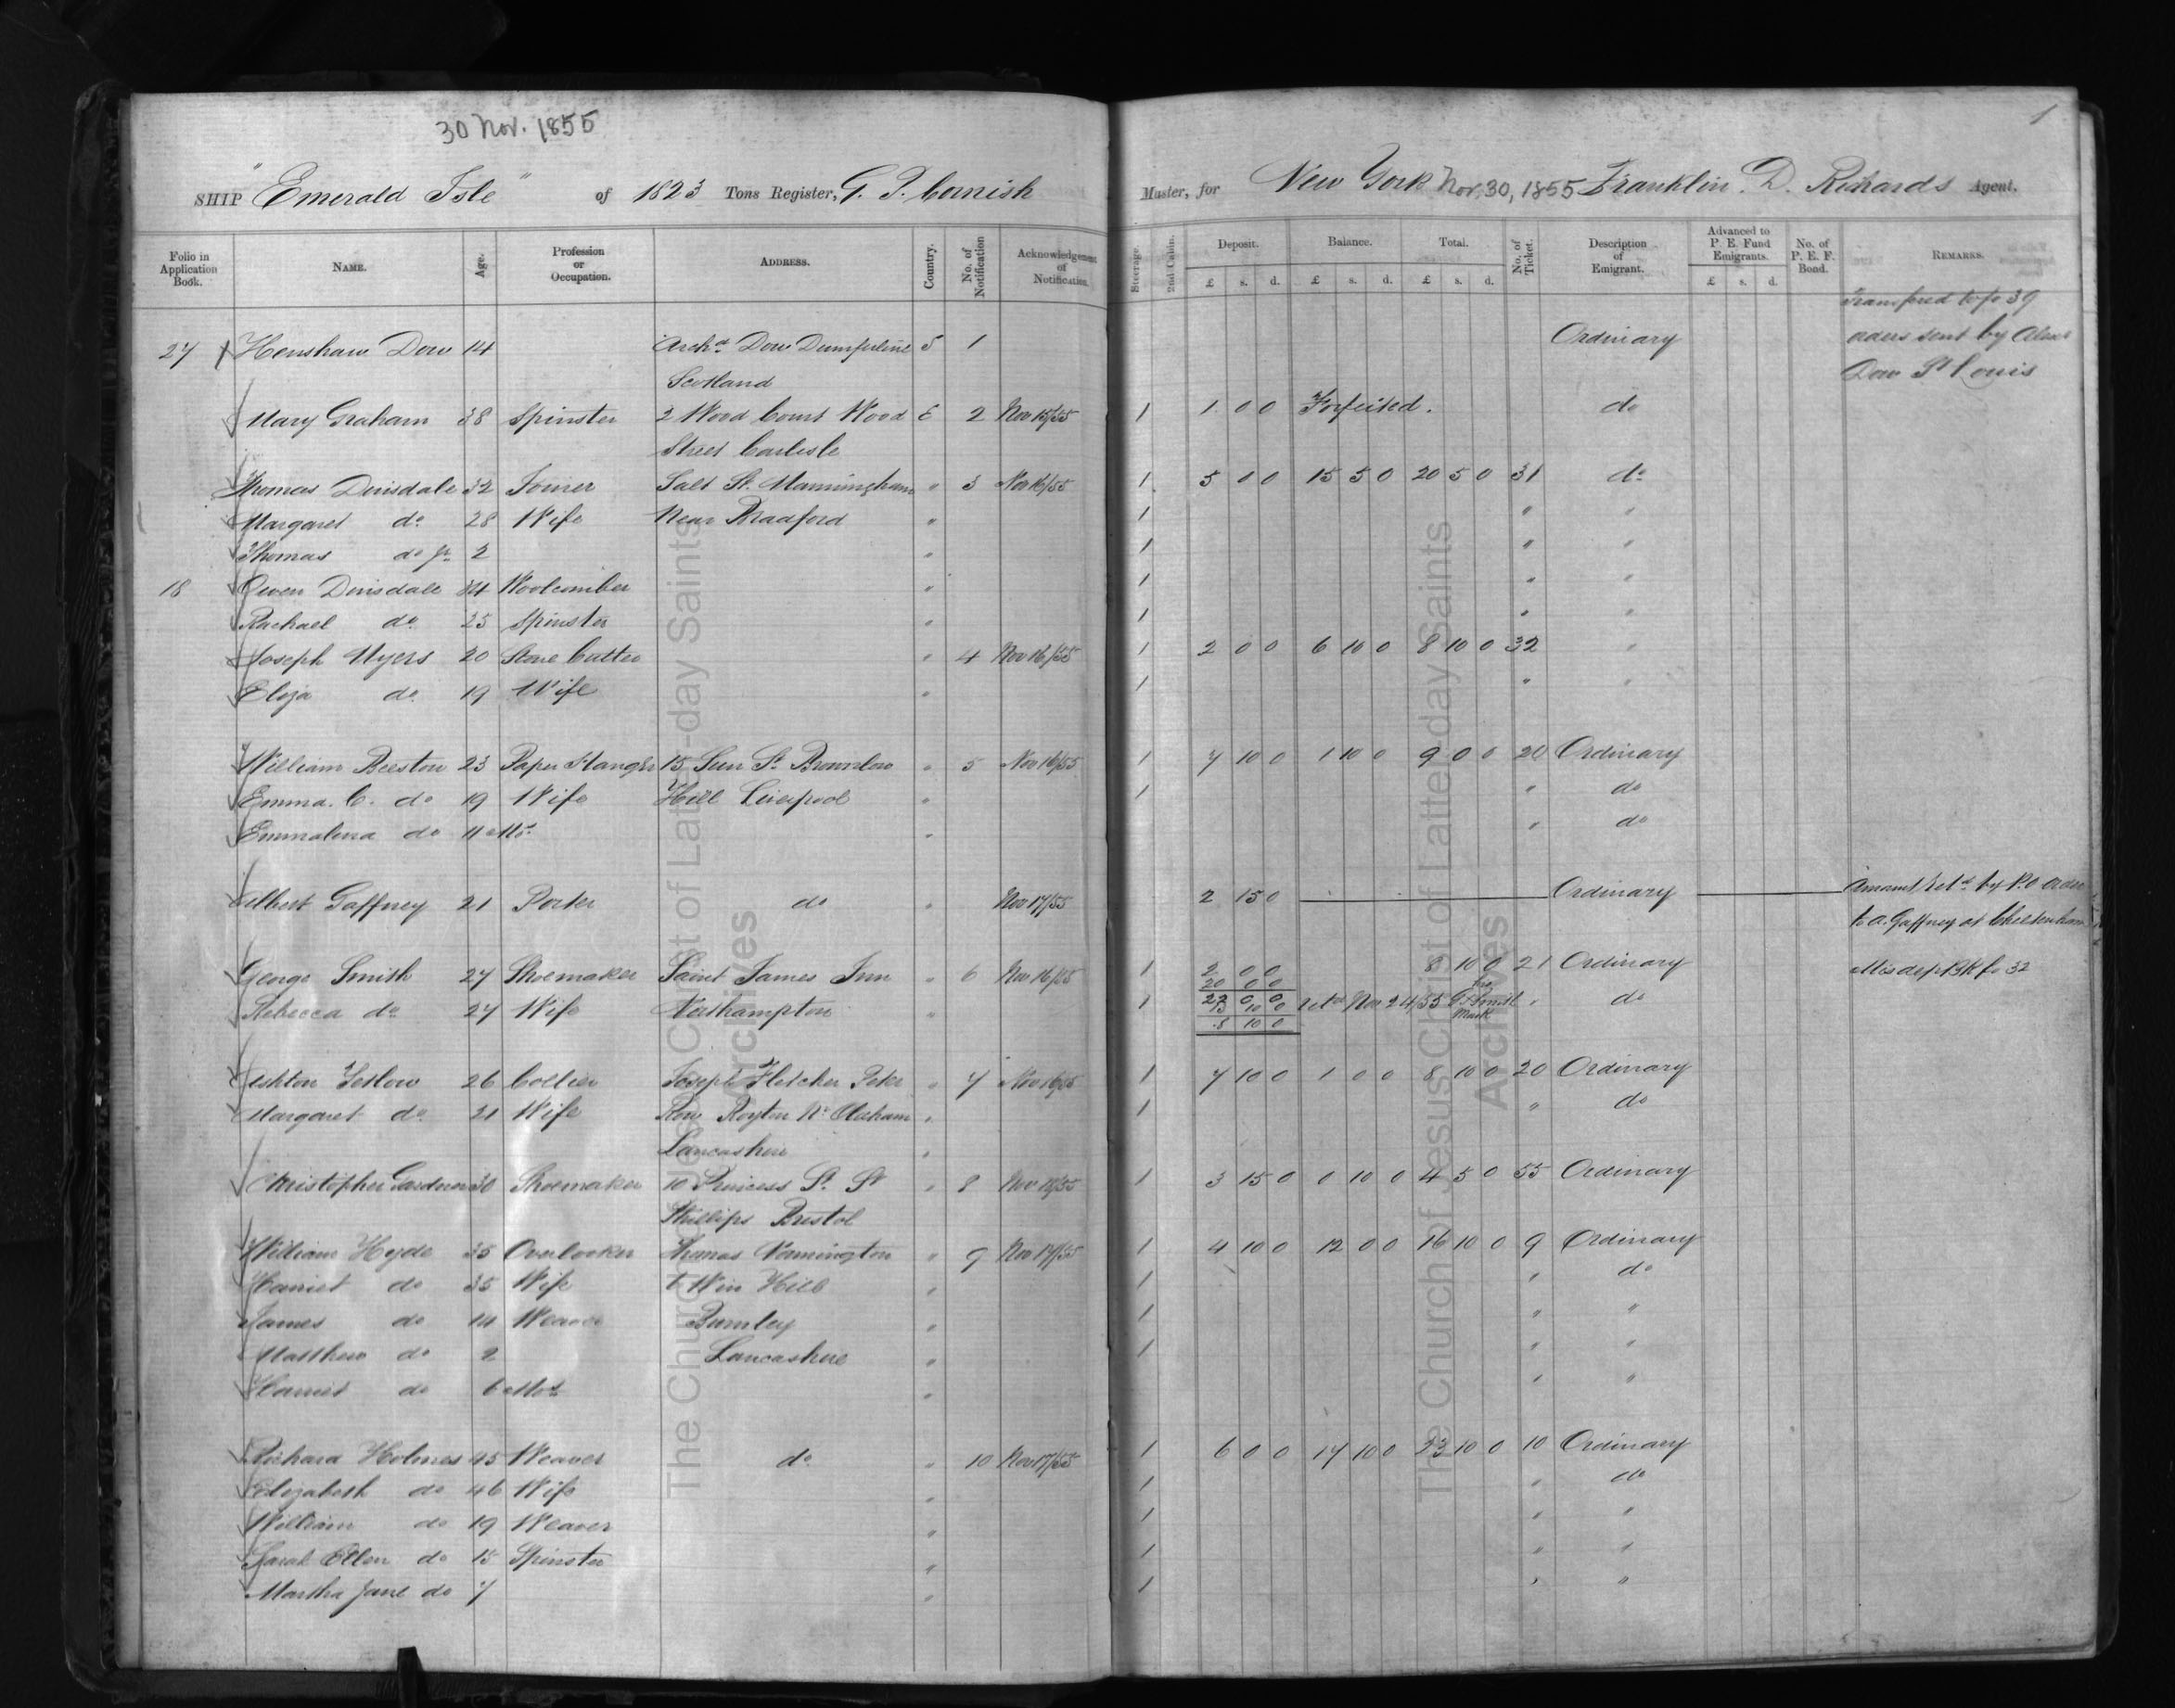 30 Nov. 1855
SHIP "Emerald Isle" of 1823 Tons Register, G. P. Cornish
Folio in Application Book. NAME. Age. Profession or Occupation. ADDRESS. Country. No. of Notification Acknowledgement of Notification.
27 Henshaw Dow 14 Archd Dow Dumferline S 1
Scotland
Mary Graham 38 Spinster 2 Wood Court Wood E 2 Nov 15/55
Street Carlisle
Thomas Dinsdale 32 Joiner Salt St. Manningham " 3 Nov 16/55
Margaret do 28 Wife Near Bradford "
Thomas do Jr 2 "
18 Owen Dinsdale Woolcomber "
Rachael do 25 Spinster "
Joseph Myers 20 Stone Cutter " 4 Nov 16/55
Eliza do 19 Wife "
William Beeston 23 Paper Hanger 15 Sun St. Brownlow " 5 Nov 16/55
Emma. C. do 19 Wife Hill Liverpool "
Emmalina do 11 Mos "
Albert Gaffney 21 Porter do " Nov 17/55
George Smith 27 Shoemaker Saint James Inn " 6 Nov 16/55
Rebecca do 27 Wife Northampton "
Ashton Tetlow 26 Collier Joseph Fletcher Peter " 7 Nov 16/55
Margaret do 21 Wife Row Royton Nr Oldham "
Lancashire "
Christopher Gardner 30 Shoemaker 10 Princess St. St " 8 Nov 18/55
Phillips Bristol
William Hyde 35 Overlooker Thomas Wannington " 9 Nov 17/55
Harriet do 35 Wife Win Hill "
James do 14 Weaver Burnley "
Matthew do 2 Lancashire "
Harriet do 6 Mos "
Richard Holmes 45 Weaver do " 10 Nov 17/55
Elizabeth do 46 Wife "
William do 19 Weaver "
Sarah Ellen do 15 Spinster "
Martha Jane do 7 "
1
Master, for New York Nov. 30, 1855 Franklin. D. Richards Agent.
Steerage. 2nd Cabin. Deposit. Balance. Total. No. of Ticket. Description of Emigrant. Advanced to P. E. Fund Emigrants. No. of P. E. F. Bond. REMARKS.
£ s. d. £ s. d. £ s. d. £ s. d.
Transfered to fo 39
Ordinary orders sent by Alex
Dow St Louis
1 1 0 0 Forfeited. do
1 5 0 0 15 5 0 20 5 0 31 do
1 " "
1 " "
1 " "
1 " "
1 2 0 0 6 10 0 8 10 0 32 "
1 " "
1 7 10 0 1 10 0 9 0 0 20 Ordinary
1 " do
" do
2 15 0 Ordinary Amount Retd by P.O order
to A. Gaffney at Cheltenham
1 2 0 0 8 10 0 21 Ordinary Mis dep Bk fo 32
20 0 0
1 22 0 0 retd Nov 24/55 " do
13 10 0
8 10 0
1 7 10 0 1 0 0 8 10 0 20 Ordinary
1 " do
1 3 15 0 0 10 0 4 5 0 55 Ordinary
1 4 10 0 12 0 0 16 10 0 9 Ordinary
1 " do
1 " "
1 " "
" "
1 6 0 0 17 10 0 23 10 0 10 Ordinary
1 " do
1 " "
1 " "
1 " "
The Church of Jesus Christ of Latter-day Saints
Archives
The Church of Jesus Christ of Latter-day Saints
Archives